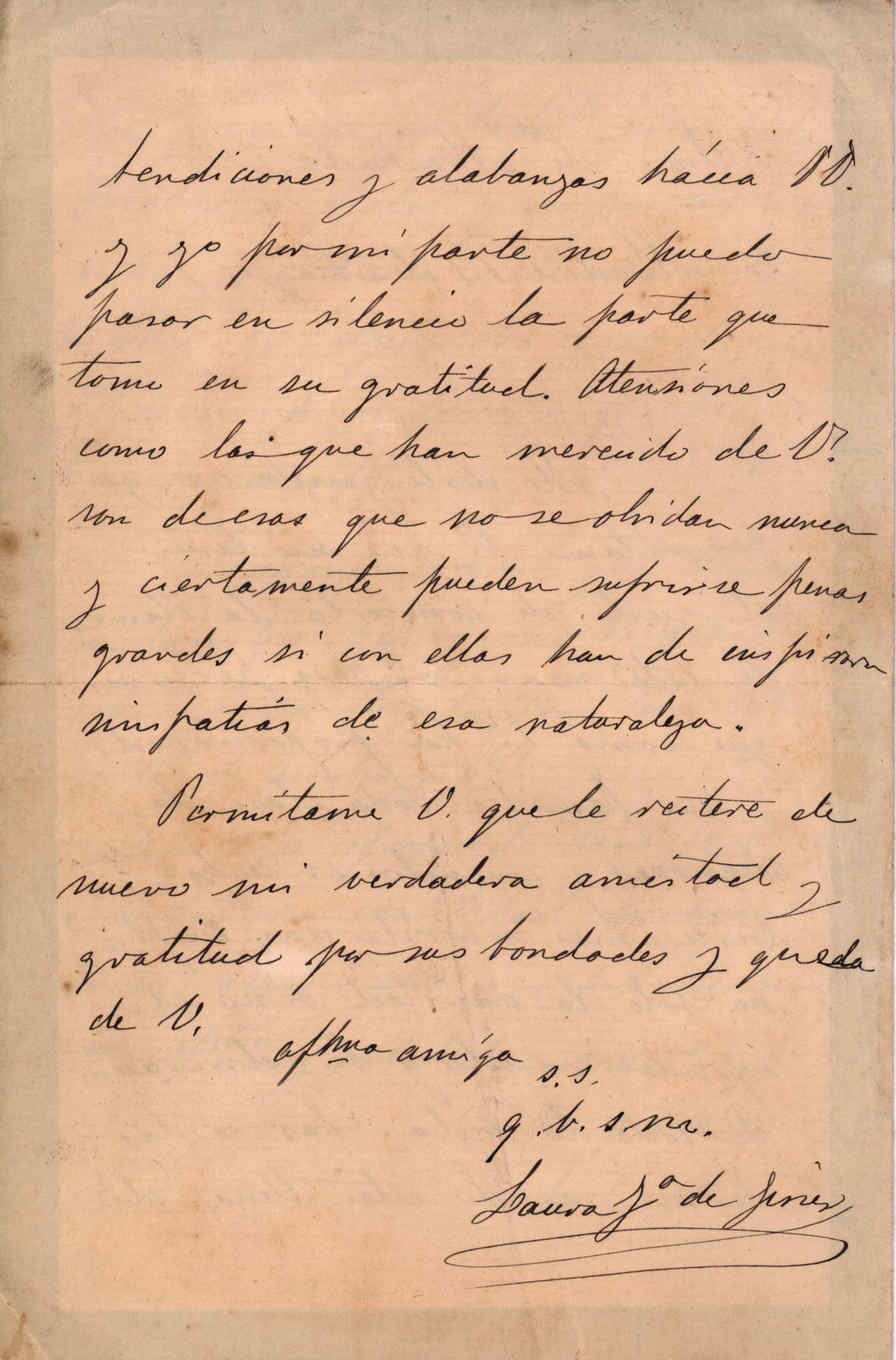 bendiciones y alabanzas hácia VV.
y yo por mi parte no puedo
pasar en silencio la parte que
tomo en su gratitud. Atensiones
como las que han merecido de V.
son de esas que no se olvidan nunca
y ciertamente pueden sufrirse penas
grandes si con ellas han de inspirarse
simpatías de esa naturaleza.
Permítame V. que le reitere de
nuevo mi verdadera amistad y
gratitud por sus bondades y queda
de V.
afma amiga
s.s.
q.b.s.m.
Laura de